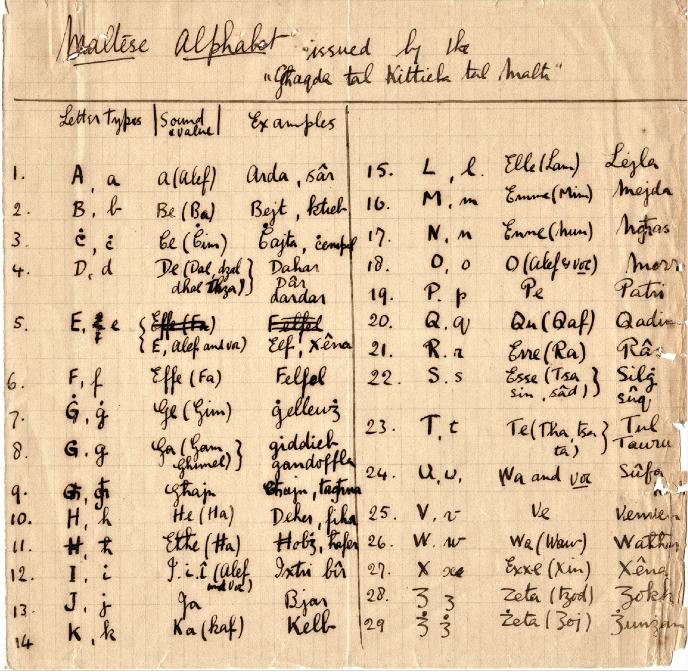 Maltese Alphabet issued by the
"Għaqda tal Kittieba tal Malti"
Letter types | Sound value | Examples
1. A, a a (Alef) Arda, sâr
2. B, b Be (Ba) Bejt, ktieb
3. Ċ, ċ Ċe (Ċim) Ċajta, ċempel
4. D, d De (Dal, dzal Dahar
dhal thza) } Dâr
dardar
5. E, e { Effe (Fa) Felfel
{ E, Alef and voc) Elf, Xêna
6. F, f Effe (Fa) Felfel
7. Ġ, ġ Ġe (Ġim) ġellewż
8. G, g Ga (Gam, giddieb
Ghimel) } gandoffla
9. Għ, għ Għajn Għajn, tagħna
10. H, h He (Ha) Deher, fiha
11. Ħ, ħ Ethe (Ha) Ħobż,
12. I, i I. i. î (Alef Ixtri bîr
and voc)
13. J, j Ja Bjar
14 K, k Ka (kaf) Kelb
15. L, l. Elle (Lam) Lejla
16. M, m Emme (Mim) Mejda
17. N, n Enne (Nun)
18. O, o O (Alef & voc)
19. P. p Pe Patri
20. Q, q Qu (Qaf)
21. R. r Erre (Ra)
22. S. s Esse (Tsa } Silġ
sin, sâd) sûq
23. T, t Te (Tha, tsa } Tul
ta)
24. U, u, Wa and voc Sûfa
25. V, v Ve
26. W. w Wa (Waw)
27. X x Exxe (Xin) Xêna
28. Z z Zeta (tzod)
29 Ż ż Żeta (Żoj)